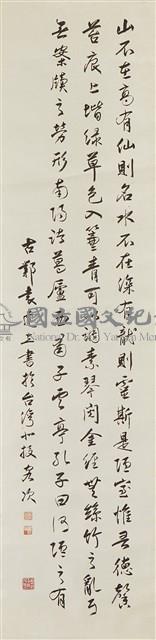 山不在高有仙則名水不在深有龍則靈斯是陋室惟吾德馨
苔痕上堦綠草色入簾青可以調素琴閱金經無絲竹之亂耳
無案牘之勞形南陽諸葛廬西蜀子雲亭孔子曰何陋之有
古鄭袁書於台灣北投客次
國立國父紀念館
National Dr. Sun Yat-sen Memorial Hall